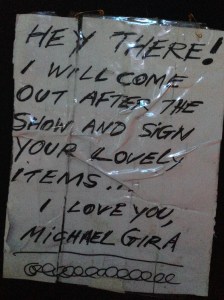 HEY THERE!
I WILL COME
OUT AFTER THE
SHOW AND SIGN
YOUR LOVELY
ITEMS...
I LOVE YOU,
MICHAEL GIRA